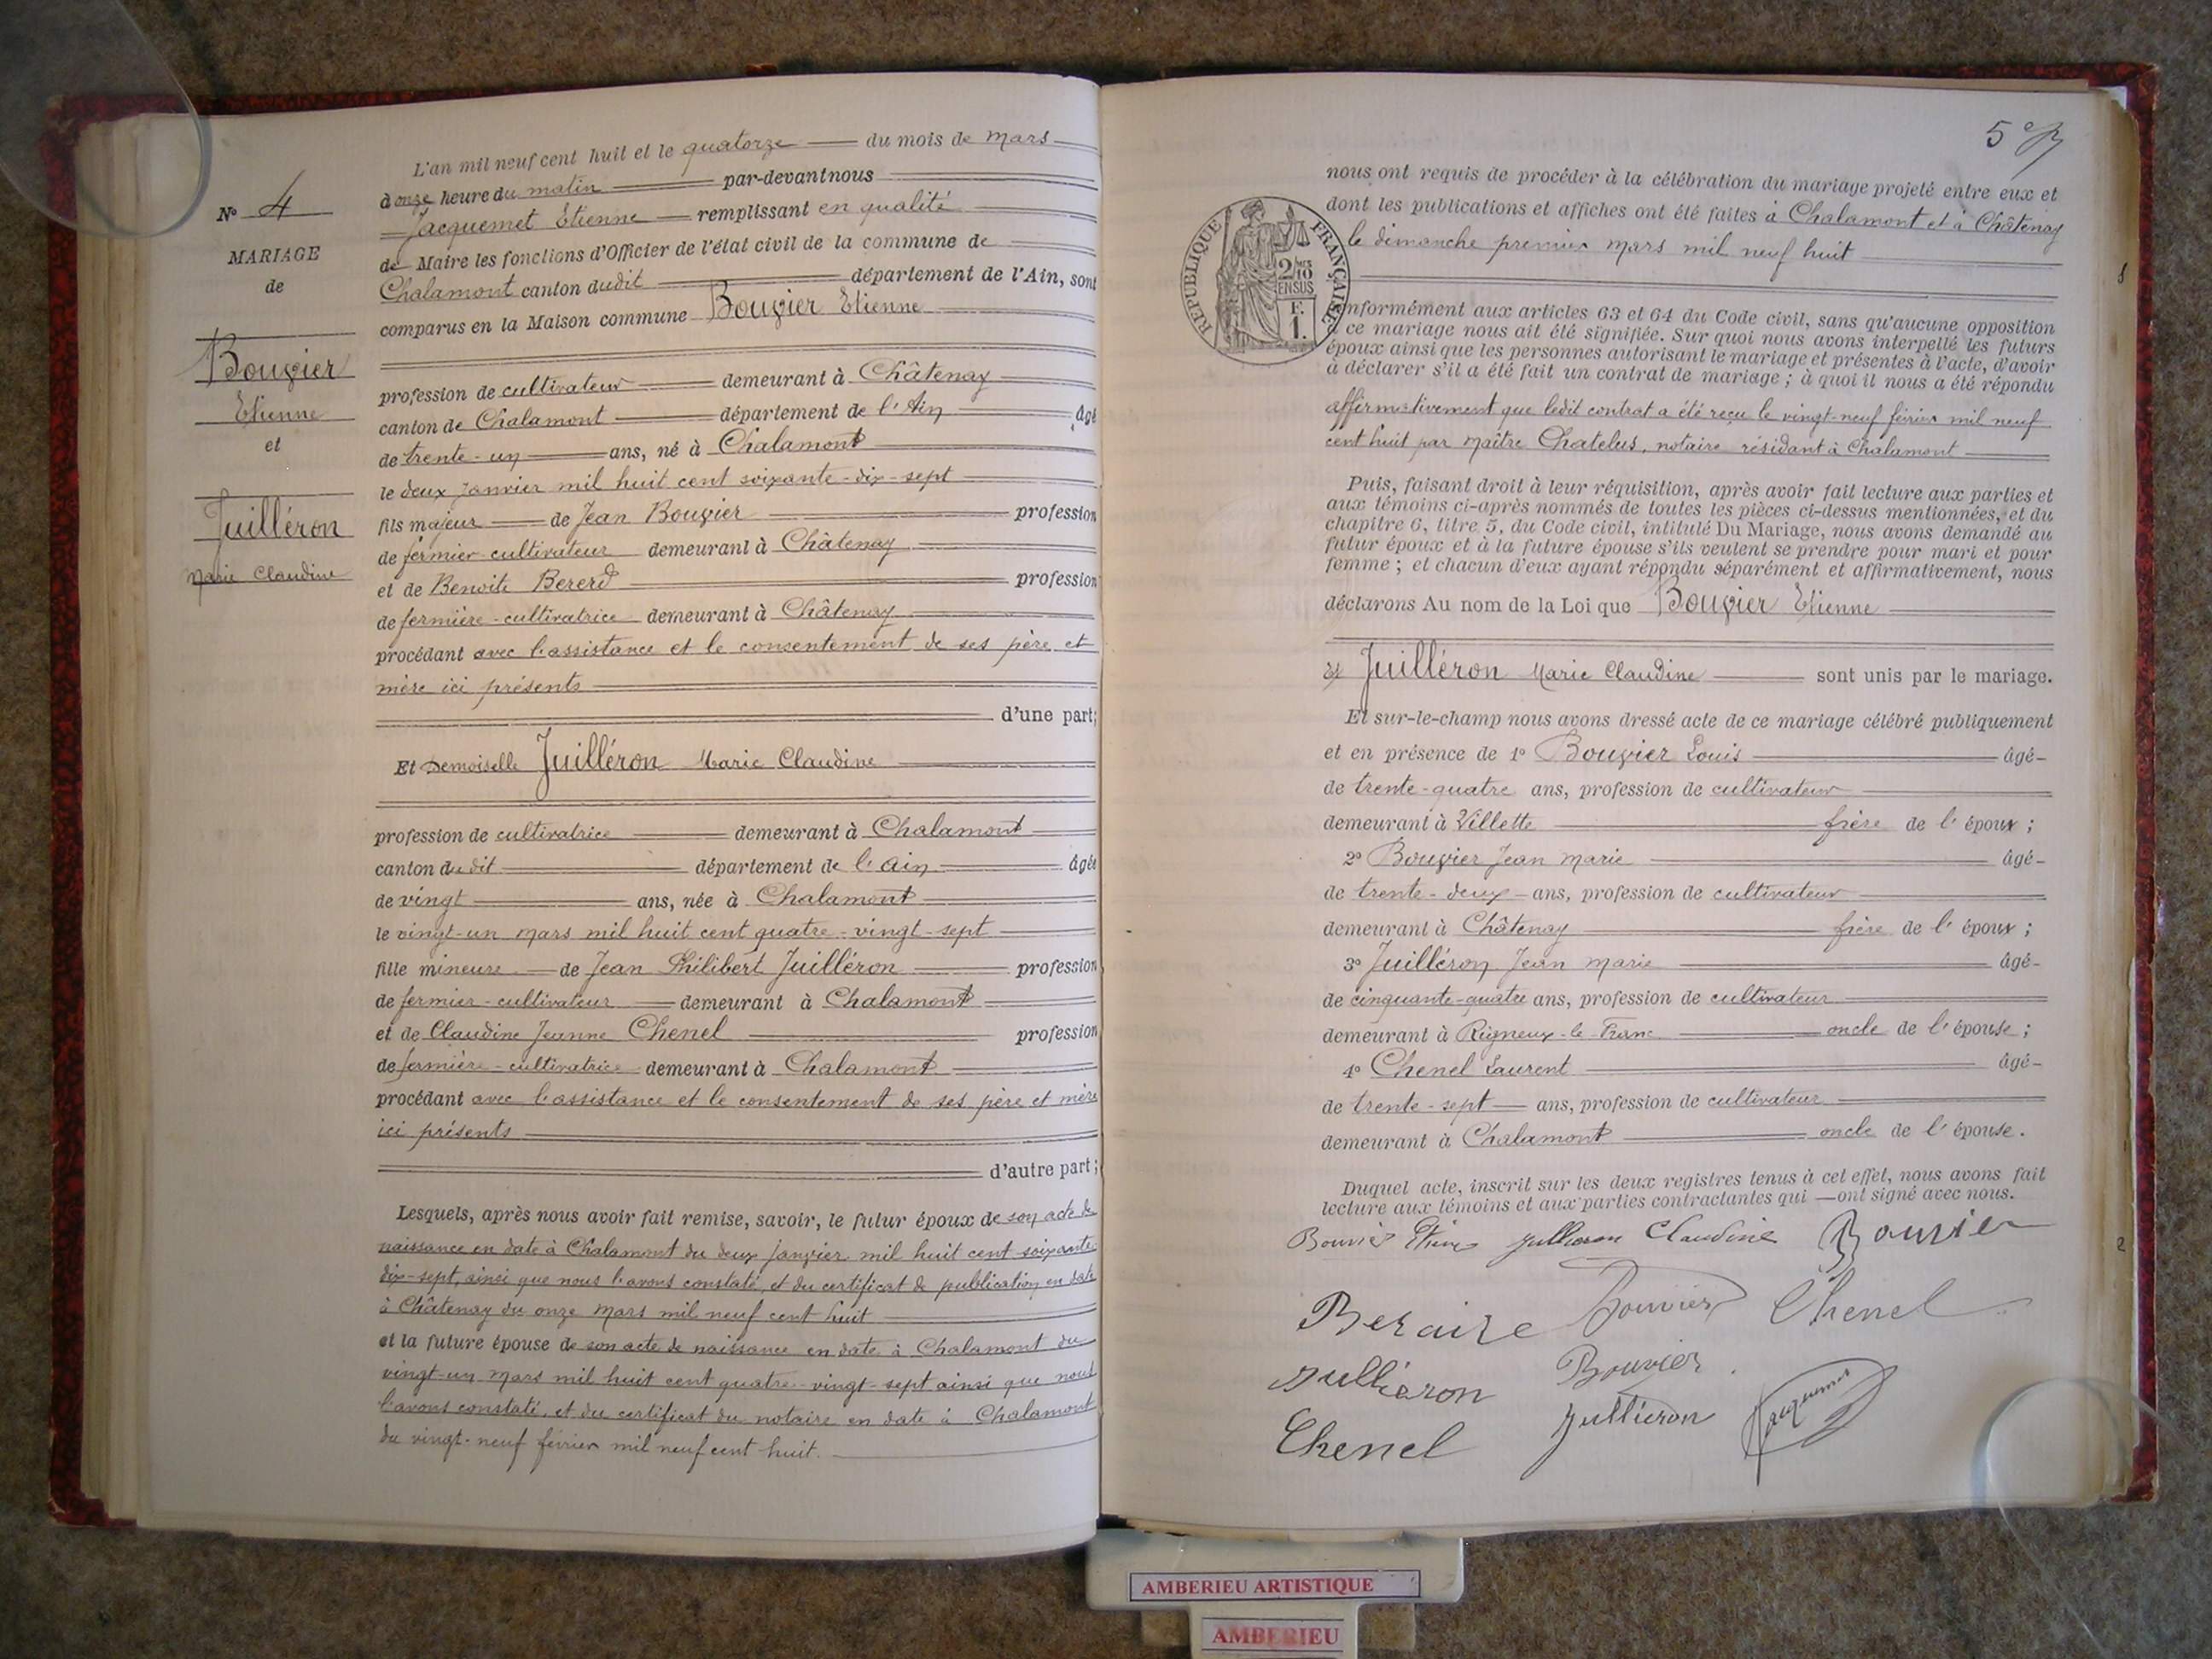 N° 4
MARIAGE
de
Bouvier
Etienne
et
Juilléron
Marie Claudine
L'an mil neuf cent huit et le quatorze du mois de mars
à onze heure du matin par-devant nous
Jacquemet Etienne remplissant en qualité
de Maire les fonctions d'Officier de l'état civil de la commune de
Chalamont canton dudit département de l'Ain, sont
comparus en la Maison commune Bouvier Etienne
profession de cultivateur demeurant à Châtenay
canton de Chalamont département de l'Ain âgé
de trente-un ans, né à Chalamont
le deux janvier mil huit cent soixante-dix-sept
fils majeur de Jean Bouvier profession
de fermier-cultivateur demeurant à Châtenay
et de Benoite Bererd profession
de fermière-cultivatrice demeurant à Châtenay
procédant avec l'assistance et le consentement de ses père et
mère ici présents
d'une part;
Et Demoiselle Juilléron Marie Claudine
profession de cultivatrice demeurant à Chalamont
canton du dit département de l'Ain âgée
de vingt ans, née à Chalamont
le vingt-un mars mil huit cent quatre-vingt-sept
fille mineure de Jean Philibert Juilléron profession
de fermier-cultivateur demeurant à Chalamont
et de Claudine Jeanne Chenel profession
de fermière-cultivatrice demeurant à Chalamont
procédant avec l'assistance et le consentement de ses père et mère
ici présents
d'autre part;
Lesquels, après nous avoir fait remise, savoir, le futur époux de son acte de
naissance en date à Chalamont du deux janvier mil huit cent soixante-
dix-sept, ainsi que nous l'avons constaté, et du certificat de publication en date
à Châtenay du onze mars mil neuf cent huit
et la future épouse de son acte de naissance en date à Chalamont du
vingt-un mars mil huit cent quatre-vingt-sept ainsi que nous
l'avons constaté, et du certificat du notaire en date à Chalamont
du vingt-neuf février mil neuf cent huit.
5e
nous ont requis de procéder à la célébration du mariage projeté entre eux et
dont les publications et affiches ont été faites à Chalamont et à Châtenay
le dimanche premier mars mil neuf huit
RÉPUBLIQUE FRANÇAISE
2/10
EN SUS
F.
1.
nformément aux articles 63 et 64 du Code civil, sans qu'aucune opposition
ce mariage nous ait été signifiée. Sur quoi nous avons interpellé les futurs
époux ainsi que les personnes autorisant le mariage et présentes à l'acte, d'avoir
à déclarer s'il a été fait un contrat de mariage ; à quoi il nous a été répondu
affirmativement que ledit contrat a été reçu le vingt-neuf février mil neuf
cent huit par Maître Chatelus, notaire résidant à Chalamont
Puis, faisant droit à leur réquisition, après avoir fait lecture aux parties et
aux témoins ci-après nommés de toutes les pièces ci-dessus mentionnées, et du
chapitre 6, titre 5, du Code civil, intitulé Du Mariage, nous avons demandé au
futur époux et à la future épouse s'ils veulent se prendre pour mari et pour
femme ; et chacun d'eux ayant répondu séparément et affirmativement, nous
déclarons Au nom de la Loi que Bouvier Etienne
et Juilléron Marie Claudine sont unis par le mariage.
Et sur-le-champ nous avons dressé acte de ce mariage célébré publiquement
et en présence de 1° Bouvier Louis âgé
de trente-quatre ans, profession de cultivateur
demeurant à Villette frère de l'époux ;
2° Bouvier Jean Marie âgé
de trente-deux ans, profession de cultivateur
demeurant à Châtenay frère de l'époux ;
3° Juilléron Jean Marie âgé
de cinquante-quatre ans, profession de cultivateur
demeurant à Rigneux-le-Franc oncle de l'épouse ;
4° Chenel Laurent âgé
de trente-sept ans, profession de cultivateur
demeurant à Chalamont oncle de l'épouse.
Duquel acte, inscrit sur les deux registres tenus à cet effet, nous avons fait
lecture aux témoins et aux parties contractantes qui ont signé avec nous.
Bouvier Etienne Jullieron Claudine Bouvier
Beraire Bouvier Chenel
Jullieron Bouvier
Chenel Jullieron Jacquemet
AMBERIEU ARTISTIQUE
AMBERIEU